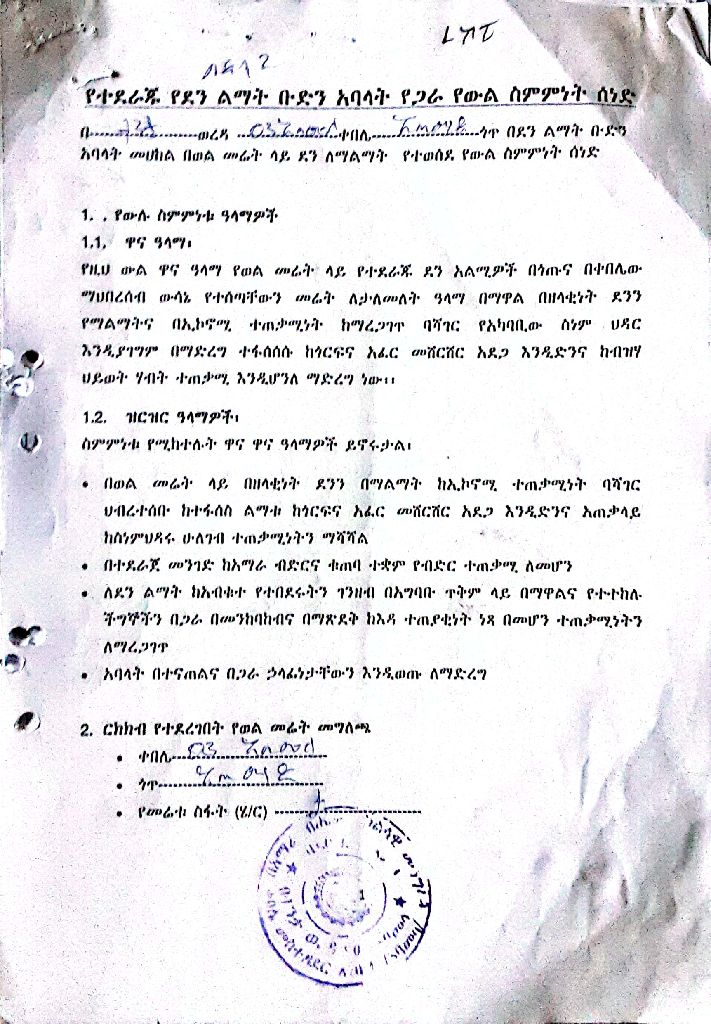 የተደራጁ የደን ልማት ቡድን አባላት የጋራ የውል ስምምነት ሰነድ
በ ወረዳ ቀበሌ ጎጥ በደን ልማት ቡድን
አባላት መሀከል በወል መሬት ላይ ደን ለማልማት የተወሰደ የውል ስምምነት ሰነድ
1. . የውሉ ስምምነቱ ዓላማዎች
1.1. ዋና ዓላማ፡
የዚህ ውል ዋና ዓላማ የወል መሬት ላይ የተደራጁ ደን አልሚዎች በጎጡና በተበሌው
ማህበረሰብ ውሳኔ የተሰጣቸውን መሬት ለታለመለት ዓላማ በማዋል በዘላቂነት ደንን
የማልማትና በኢኮኖሚ ተጠቃሚነት ከማረጋገጥ ባሻገር የአካባቢው ስነም ህዳር
እንዲያገግም በማድረግ ተፋሰሰሱ ከጎርፍና አፈር መሸርሸር አደጋ እንዲድንና ከብዝሃ
ህይወት ሃብት ተጠቃሚ እንዲሆንለ ማድረግ ነው፡፡
1.2. ዝርዝር ዓላማዎች፡
ስምምነቱ የሚከተሉት ዋና ዋና ዓላማዎች ይኖሩታል፡
• በወል መሬት ላይ በዘላቂነት ደንን በማልማት ከኢኮኖሚ ተጠቃሚነት ባሻገር
ህብረተሰቡ ከተፋሰስ ልማቱ ከጎርፍና አፈር መሸርሸር አደጋ እንዲድንና አጠቃላይ
ከስነምህዳሩ ሁለገብ ተጠቃሚነትን ማሻሻል
• በተደራጀ መንገድ ከአማራ ብድርና ቁጠባ ተቋም የብድር ተጠቃሚ ለመሆን
• ለደን ልማት ከአብቁተ የተበደሩትን ገንዘብ በአግባቡ ጥቅም ላይ በማዋልና የተተከሉ
ችግኞችን በጋራ በመንከባከብና በማጽደቅ ከእዳ ተጠያቂነት ነጻ በመሆን ተጠቃሚነትን
ለማረጋገጥ
• አባላት በተናጠልና በጋራ ኃላፊነታቸውን እንዲወጡ ለማድረግ
2. ርክክብ የተደረገበት የወል መሬት መግለጫ
• ቀበሌ
• ጎጥ
• የመሬቱ ስፋት (ሄ/ር)